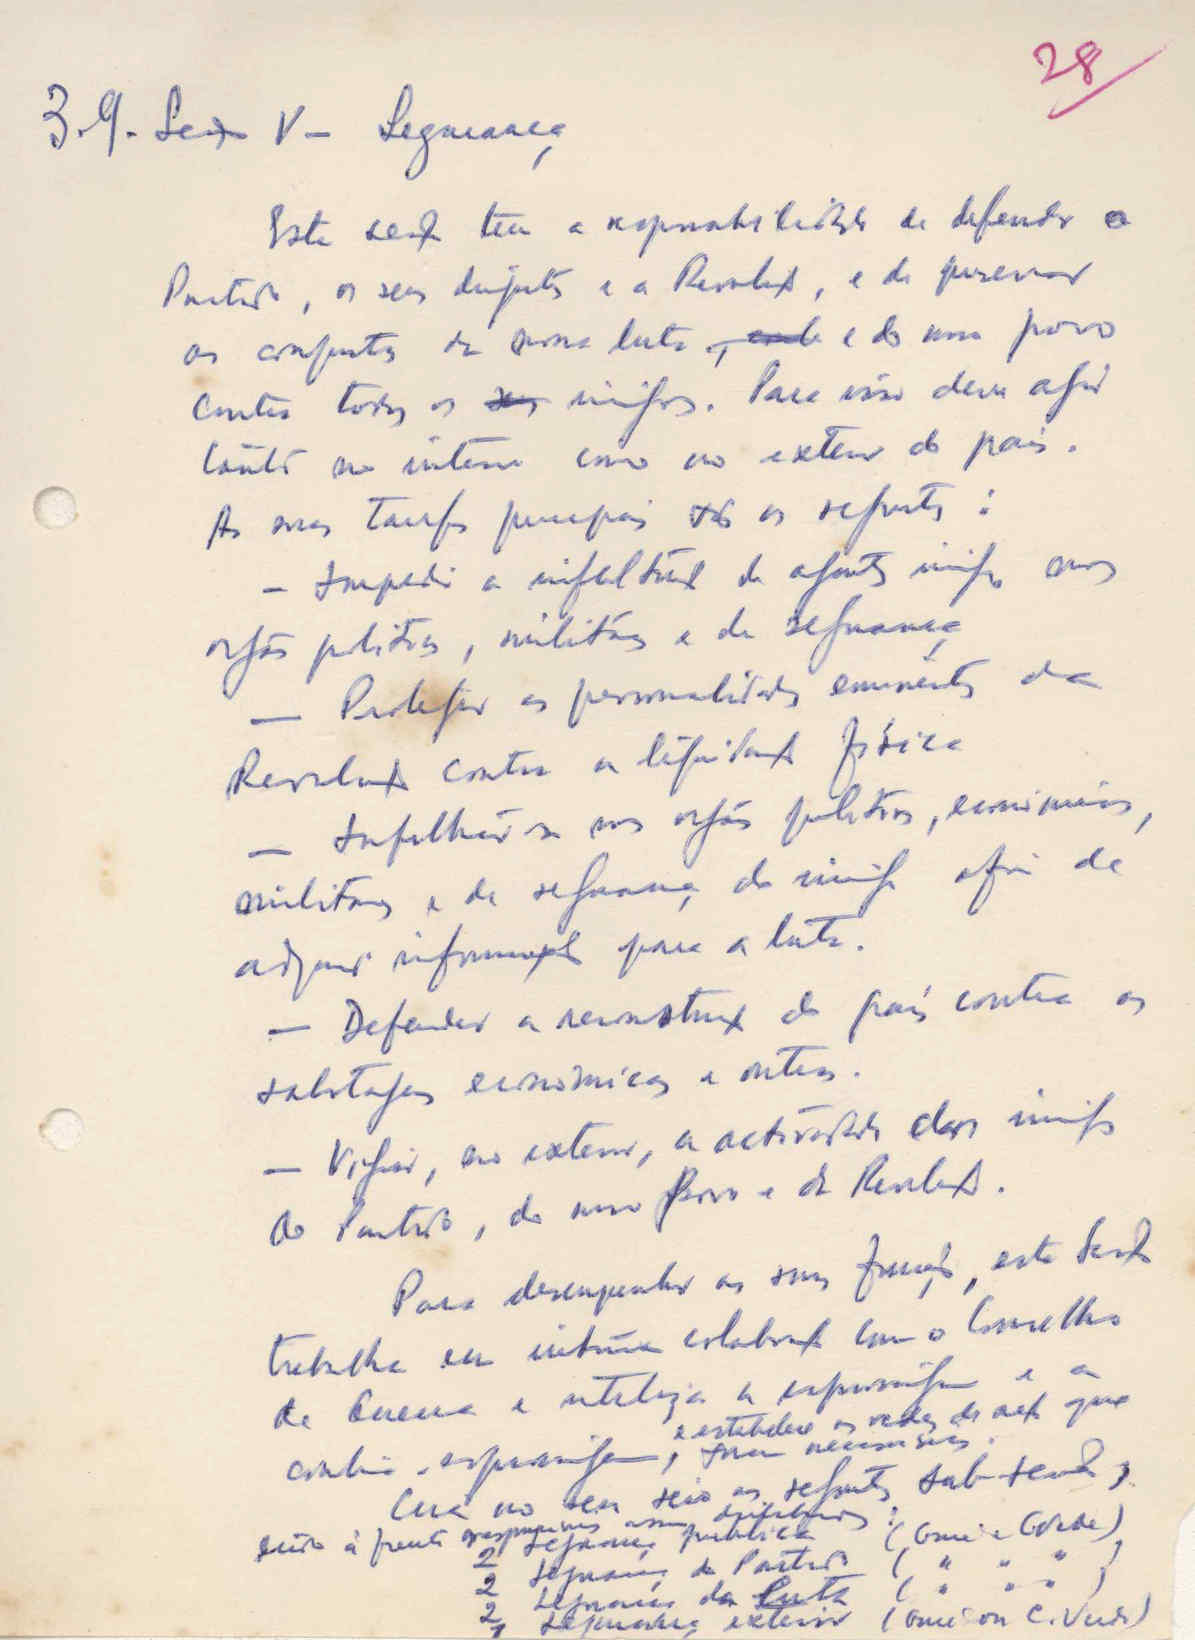 28
3.9. Secção V - Segurança
Esta secção tem a responsabilidade de defender o
Partido, os seus dirigentes e a Revolução, e de preservar
as conquistas da nossa luta e do nosso povo
contra todos os inimigos. Para isso deve agir
tanto no interior como no exterior do país.
As suas tarefas principais são as seguintes:
- Impedir a infiltração de agentes inimigos nos
orgãos politicos, militares e de segurança
- Proteger as personalidades eminentes da
Revolução contra a liquidação física
- Infiltrar-se nos orgãos politicos, económicos,
militares e de segurança do inimigo afim de
adquirir informações para a luta.
- Defender a reconstrução do país contra as
sabotagens económicas e outras.
- Vigiar, no exterior, a actividade dos inimigos
do Partido, do nosso Povo e da Revolução.
Para desempenhar as suas funções, esta Secção
trabalha em íntima colaboração com o Conselho
de Guerra e utiliza a espionagem e a
contra-espionagem, e estabelece as redes de acção que
forem necessárias.
Cria no seu seio as seguintes sub-secções,
estão à frente responsáveis assim distribuidos:
2 Segurança pública (Guiné e C. Verde)
2 Segurança do Partido ( " " " )
2 Segurança da Luta ( " " " )
2 Segurança exterior (Guiné ou C. Verde)